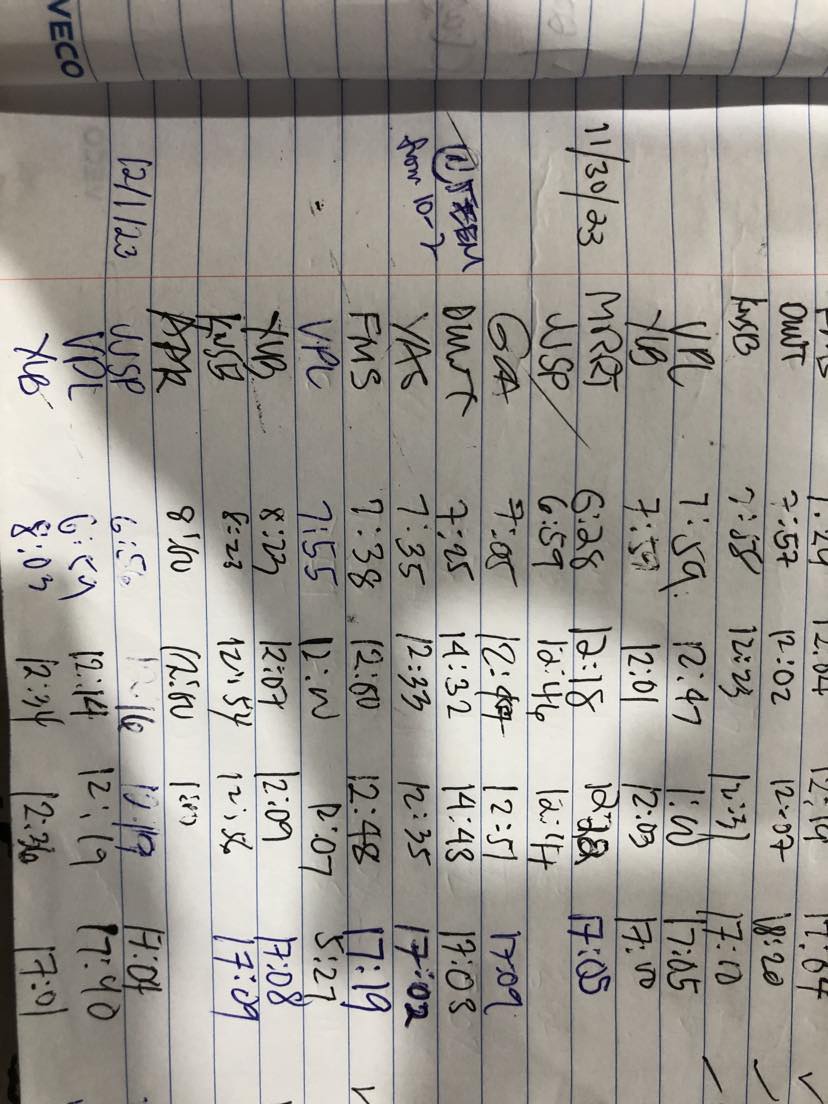 VECO
12:04 12:19 17:04
DWT 7:57 12:02 12:07 18:20
KNSB 7:58 12:23 12:31 17:10
VPL 7:59 12:47 1:00 17:05
XUB 7:57 12:01 12:03 17:00
11/30/23 MRQJ 6:28 12:18 17:05
WSP 6:59 12:46 12:47
GA 7:05 12:51 17:09
DWT 7:25 14:32 14:48 17:03
from 10-2 YAS 7:35 12:33 12:35 17:02
FMS 7:38 12:00 12:48 17:19
VPL 7:55 12:07 5:27
XUB 8:23 12:07 12:09 17:08
KNSB 8:23 12:54 12:56 17:09
8:00 12:00 1:00
12/1/23 WSP 6:56 12:16 12:19 17:04
VPL 12:14 12:19 17:40
XUB 8:03 12:34 12:36 17:01